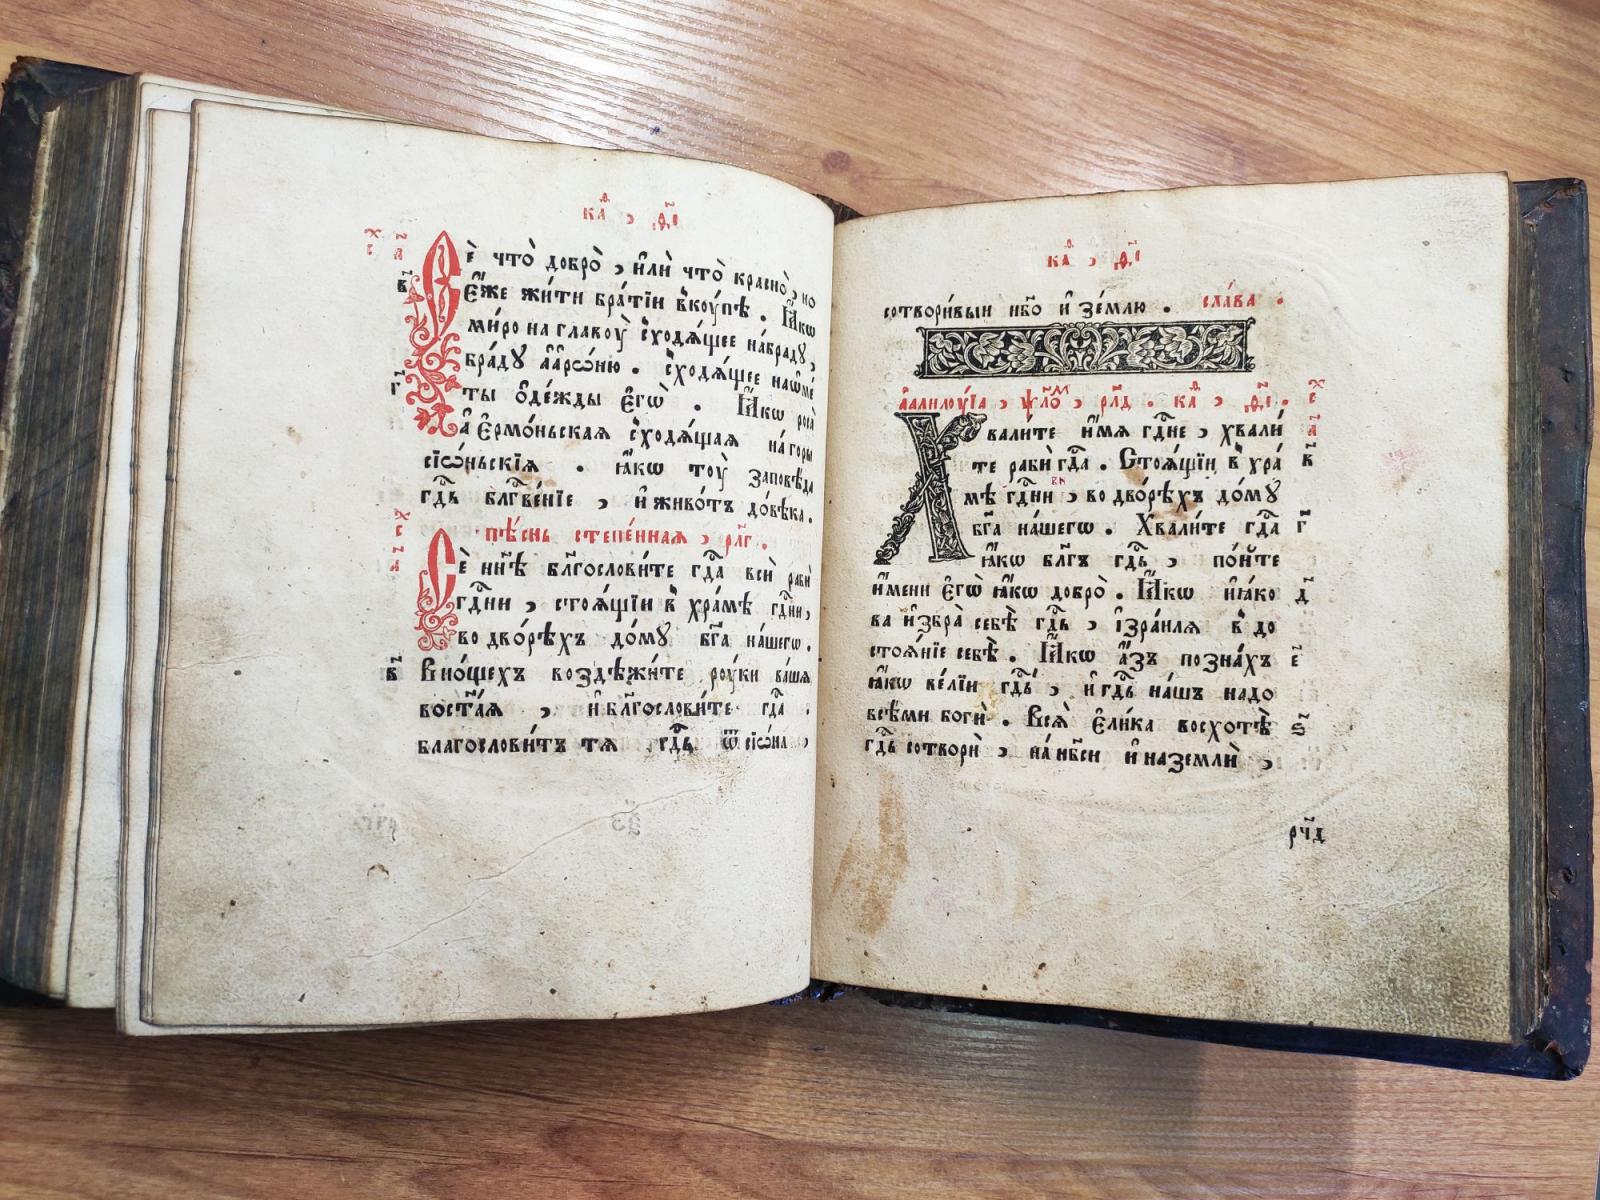 каѳ , ѳ҃і
Сѐ что̀ добро̀ , и҆лѝ что̀ красно̀ , но
є҆́же жи́ти бра́тїи вкꙋ́пѣ . Ꙗ҆́кѡ
ми́ро на главоу̀ сходѧ́щее на браду̀ ,
браду̀ а҆арѡ́ню . сходѧ́щее на ѡ҆ме́
ты ѻ҆де́жды є҆гѡ̀ . Ꙗ҆́кѡ роса̀
а҆є҆рмо́ньскаѧ сходѧ́щаѧ на горы
сїѡ́ньскїѧ . ꙗ҆́кѡ тоу̀ заповѣ́да
гдⷭ҇ь блгⷭ҇ве́нїе , и҆ живо́тъ до вѣ́ка .
пѣ́снь степе́ннаѧ , рл҃г .
Сѐ нн҃ѣ блг҃ослови́те гдⷭ҇а всѝ рабѝ
гдⷭ҇ни , стоѧ́щїи в хра́мѣ гдⷭ҇ни ,
во дво́рѣхъ до́му бг҃а на́шегѡ .
в҃ В но́щехъ воздѣжи́те роу́ки ва́ша
во ст҃аѧ , и҆ блг҃ослови́те гдⷭ҇а .
благослови́тъ тѧ гдⷭ҇ь ѿ сїѡ́на ,
каѳ , ѳ҃і
сотвори́выи нб҃о и҆ зе́млю . сла́ва .
а҆ллилоу́їа , ѱло́м , рл҃д . каѳ , ѳ҃і .
Хвали́те и҆́мѧ гдⷭ҇не , хвали́
те рабѝ гдⷭ҇а . Стоѧ́щїи в хра́ в҃
мѣ гдⷭ҇ни , во дво́рѣхъ до́му
бг҃а на́шегѡ . Хвали́те гдⷭ҇а г҃
ꙗ҆́кѡ бл҃гъ гдⷭ҇ь , по́ите
и҆́мени є҆гѡ̀ ꙗ҆́кѡ добро̀ . Ꙗ҆́кѡ и҆ꙗ́ко д҃
ва и҆збра̀ себѣ̀ гдⷭ҇ь , і҆зра́илѧ в до
стоѧ́нїе себѣ̀ . Ꙗ҆́кѡ а҆́зъ позна́хъ є҃
ꙗ҆́кѡ ве́лїи гдⷭ҇ь , и҆ гдⷭ҇ь на́шъ надо
всѣ́ми богѝ . Всѧ̀ є҆ли́ка восхотѣ̀ ѕ҃
гдⷭ҇ь сотворѝ , на нб҃си и҆ на землѝ ,
рч҃д